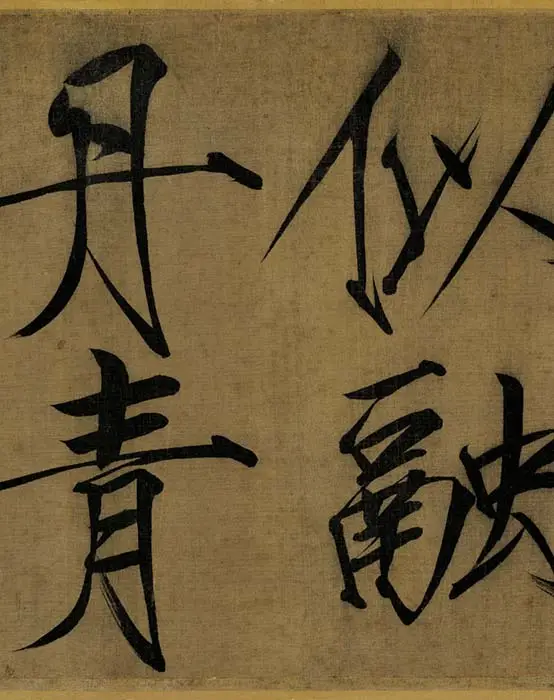 似融
丹青